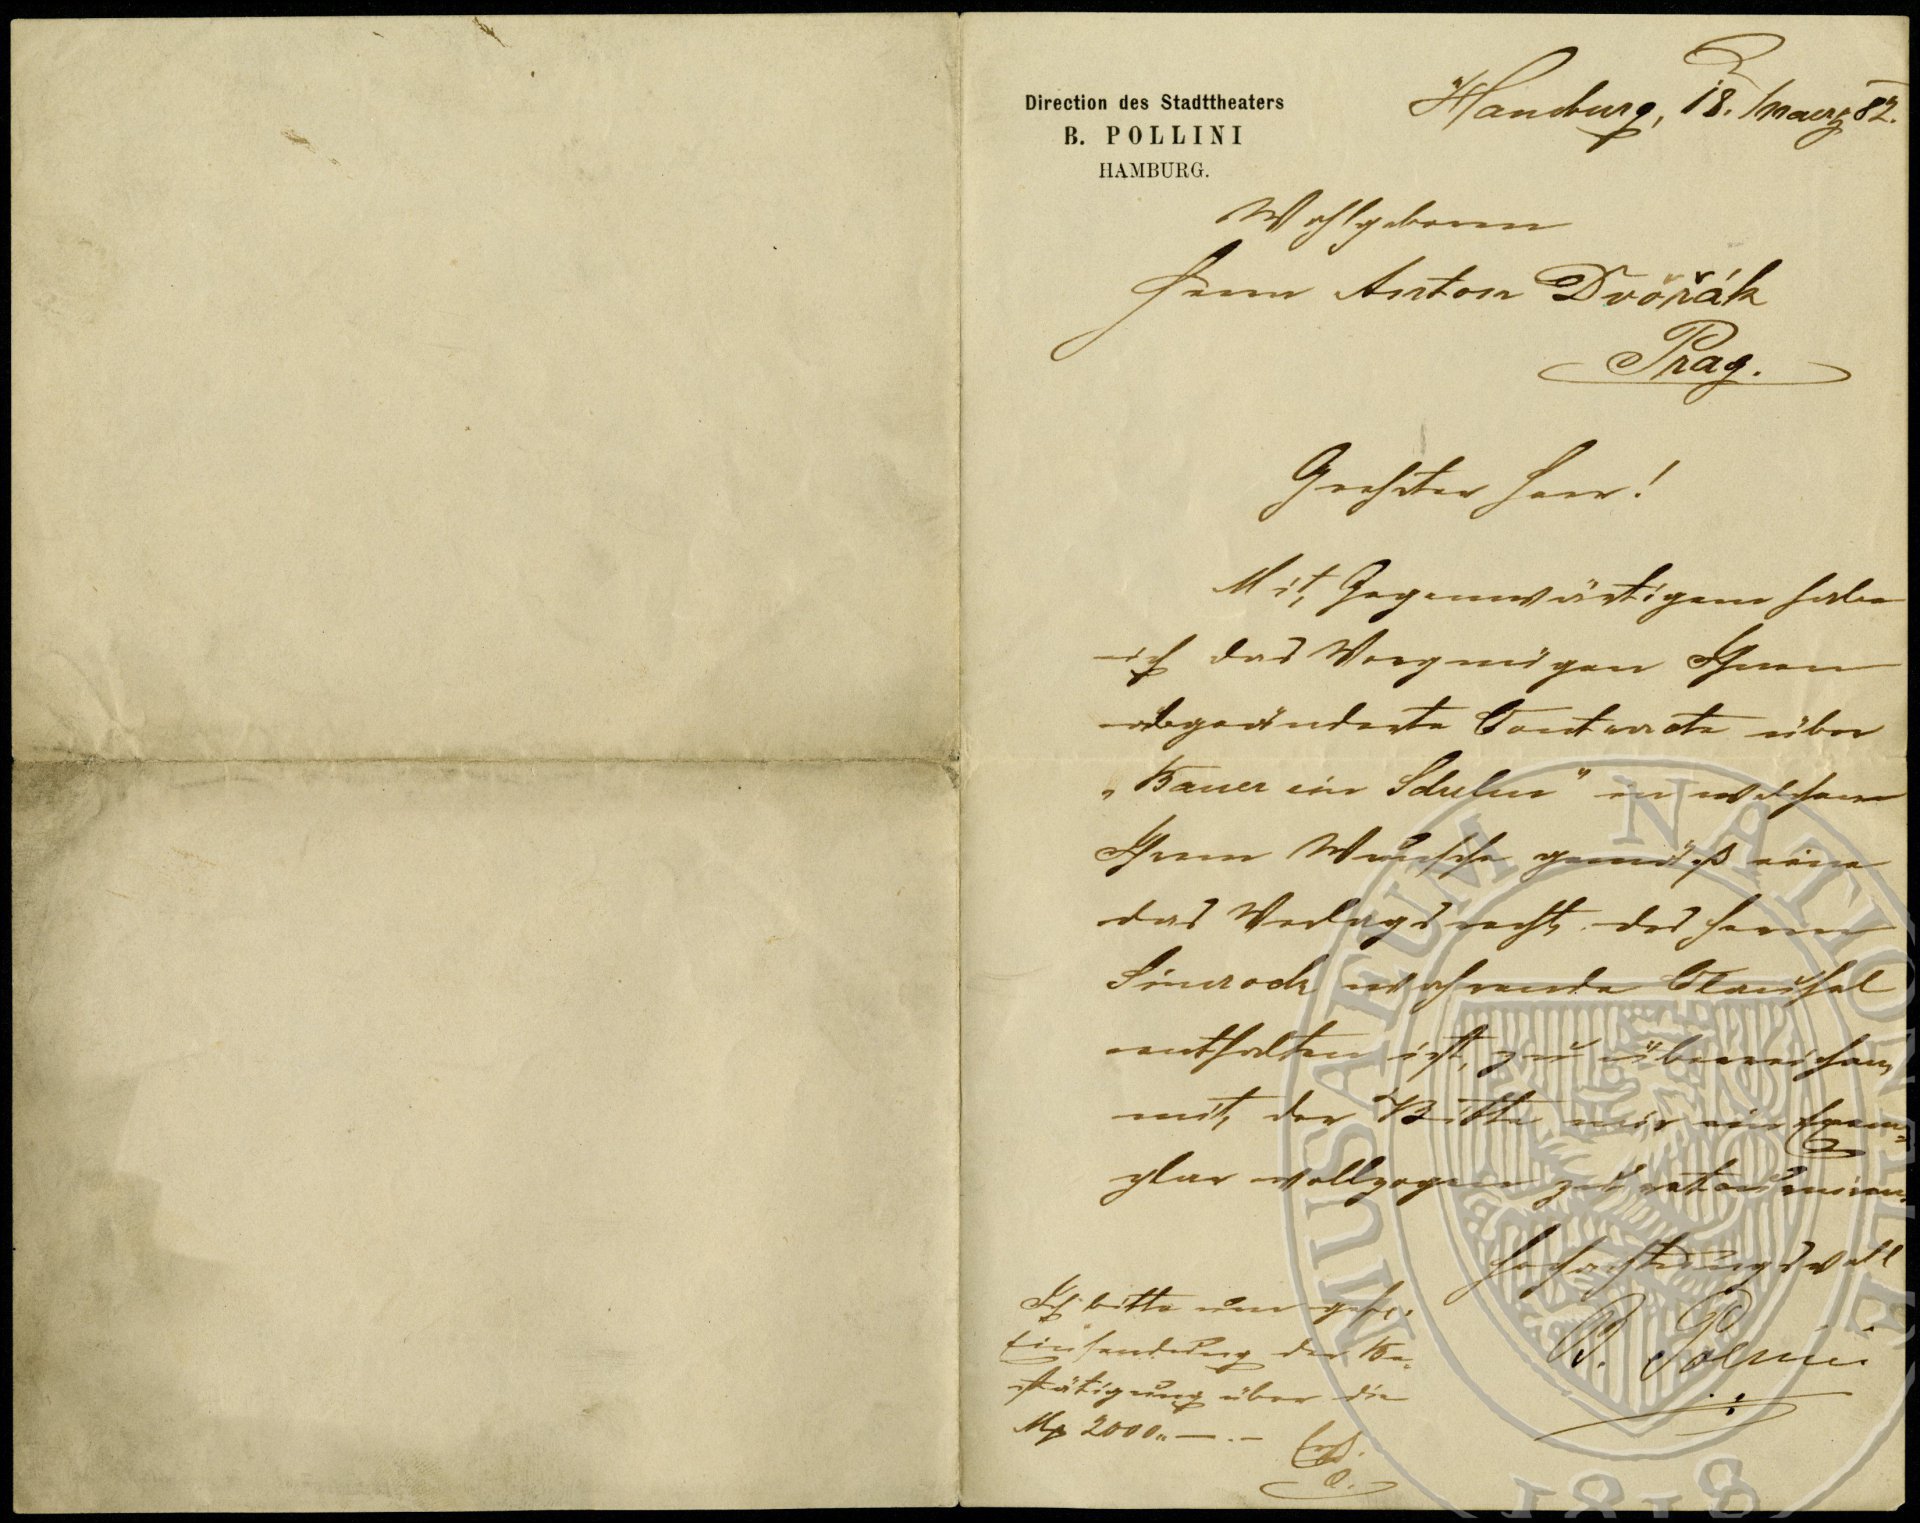 Direction des Stadttheaters
B. POLLINI
HAMBURG.
Hamburg, 18. Maerz 82.
Wohlgeboren
Herrn Anton Dvořák
Prag.
Geehrter Herr!
Mit Gegenwärtigem habe
ich das Vergnügen Ihnen
abgeänderte Contracte über
„Bauer ein Schelm" in welchem
Ihrem Wunsche gemäß eine
das Verlagsrecht des Herrn
Simrock wahrende Clausel
enthalten ist, zu überreichen,
mit der Bitte mir ein Exem=
plar vollzogen zu retourniren.
Hochachtungsvoll
B. Pollini
Ich bitte um gefl.
Einsendung der Be-
stätigung über die
Mk 2000.. — . —
MUSAEUM NATIONALE
1818